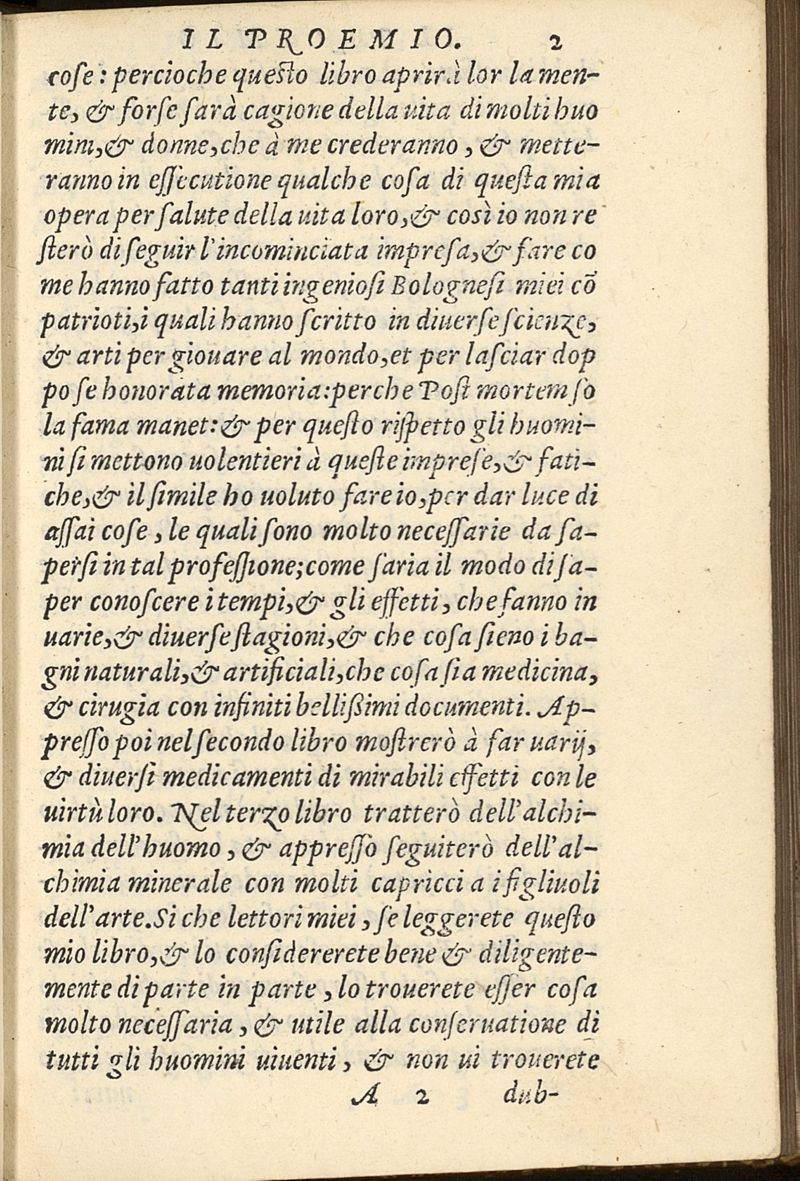 IL PROEMIO. 2
cose: percioche questo libro aprirà lor la men-
te, & forse sarà cagione della uita di molti huo
mini,& donne,che à me crederanno, & mette-
ranno in essecutione qualche cosa di questa mia
opera per salute della uita loro,& così io non re
sterò di seguir l'incominciata impresa,& fare co
me hanno fatto tanti ingeniosi Bolognesi miei cõ
patrioti,i quali hanno scritto in diuerse scienze,
& arti per giouare al mondo,et per lasciar dop
po se honorata memoria:perche Post mortem so
la fama manet:& per questo rispetto gli huomi-
ni si mettono uolentieri à queste imprese,& fati-
che,& il simile ho uoluto fare io,per dar luce di
assai cose, le quali sono molto necessarie da sa-
persi in tal professione;come saria il modo di sa-
per conoscere i tempi,& gli effetti, che fanno in
uarie,& diuerse stagioni,& che cosa sieno i ba-
gni naturali,& artificiali,che cosa sia medicina,
& cirugia con infiniti bellißimi documenti. Ap-
presso poi nel secondo libro mostrerò à far uarij,
& diuersi medicamenti di mirabili effetti con le
uirtù loro. Nel terzo libro tratterò dell'alchi-
mia dell'huomo, & appresso seguiterò dell'al-
chimia minerale con molti capricci a i figliuoli
dell'arte.Si che lettori miei, se leggerete questo
mio libro,& lo considererete bene & diligente-
mente di parte in parte, lo trouerete esser cosa
molto necessaria, & utile alla conseruatione di
tutti gli huomini uiuenti, & non ui trouerete
A 2 dub-